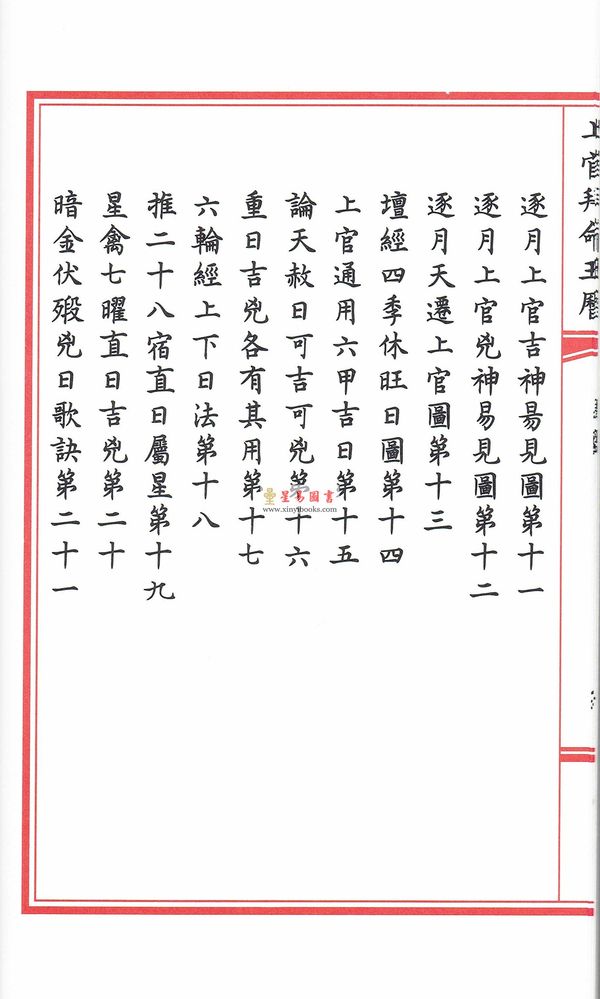 上官拜命玉曆
逐月上官吉神易見圖第十一
逐月上官兇神易見圖第十二
逐月天遷上官圖第十三
壇經四季休旺日圖第十四
上官通用六甲吉日第十五
論天赦日可吉可兇第十六
重日吉兇各有其用第十七
六輪經上下日法第十八
推二十八宿直日屬星第十九
星禽七曜直日吉兇第二十
暗金伏煞兇日歌訣第二十一
星易圖書
www.xinyibooks.com